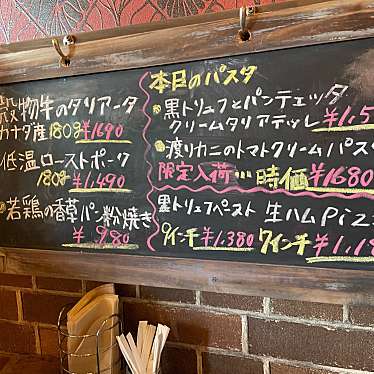 穀物牛のタリアータ
カナダ産 180g ¥1690
低温ローストポーク
180g ¥1,490
若鶏の香草パン粉焼き
¥980
本日のパスタ
黒トリュフとパンチェッタ
クリームタリアテッレ ¥1,5
渡りカニのトマトクリームパス
限定入荷 時価 ¥1680
黒トリュフペースト 生ハムPizz
9インチ ¥1,380 7インチ ¥1,18